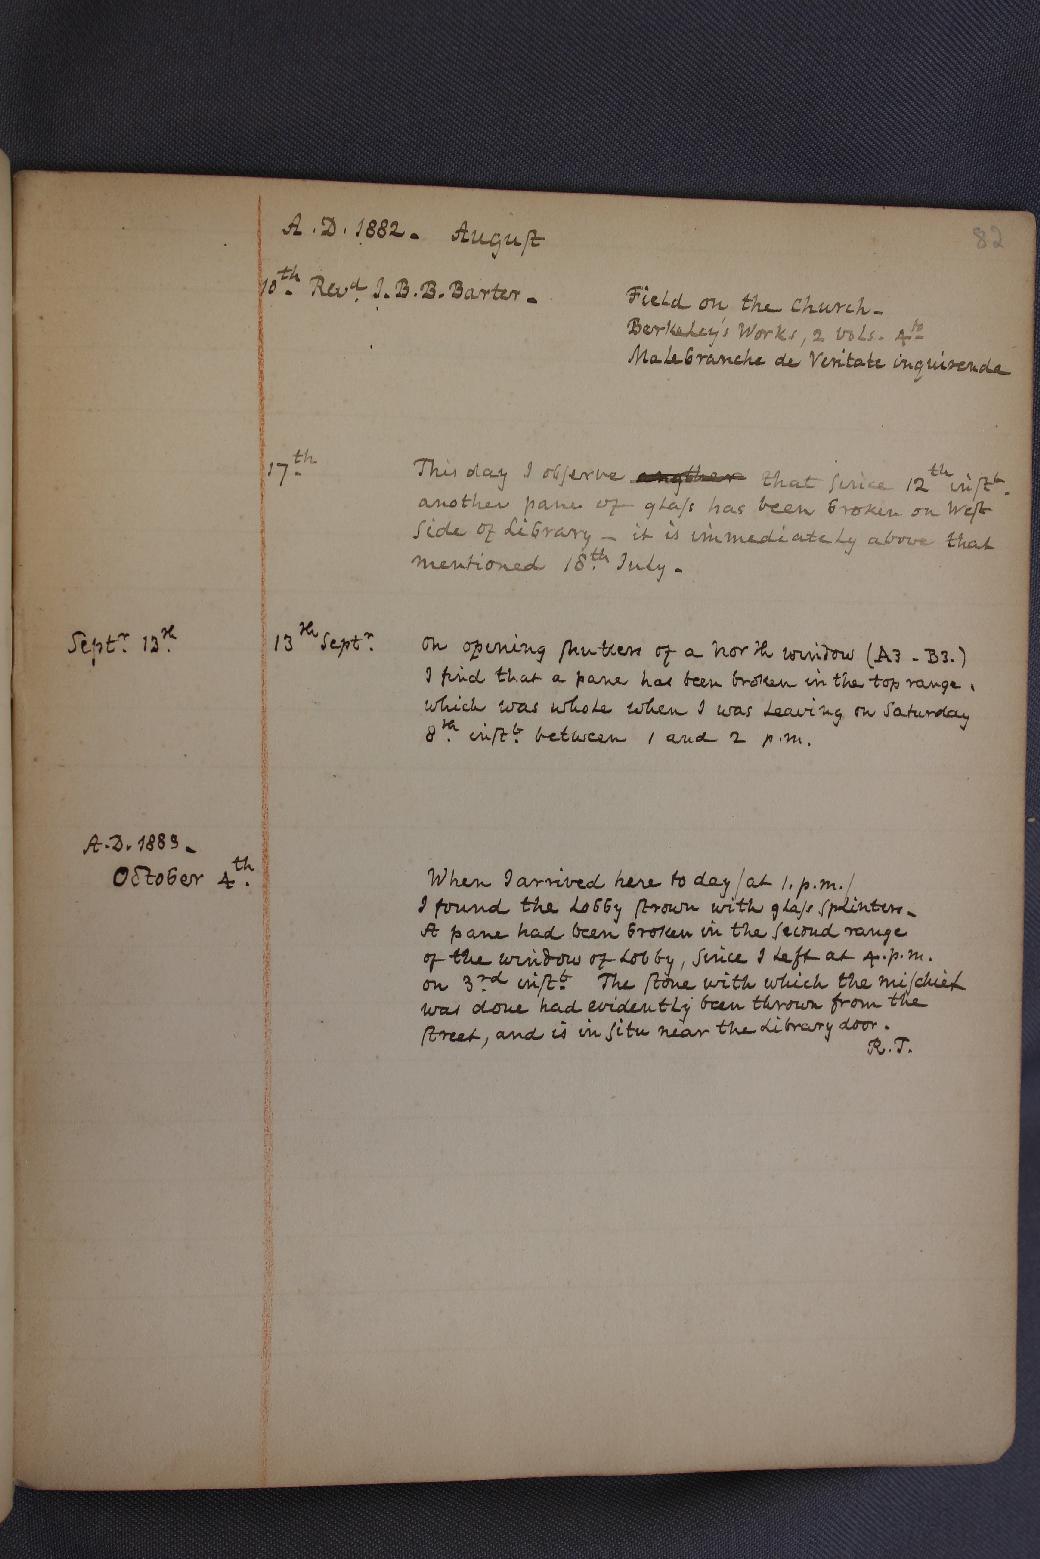 82
A.D. 1882. August
10th Revd. J.B.B. Barter.
Field on the Church.
Berkeley's Works, 2 vols. 4to
Malebranche de Veritate inquirenda
17th
This day I observe another that since 12th inst.
another pane of glass has been broken on West
side of Library - it is immediately above that
mentioned 18th July.
Septr. 13th
13th Septr.
On opening shutters of a North window (A3 - B3.)
I find that a pane has been broken in the top range,
which was whole when I was leaving on Saturday
8th inst. between 1 and 2 p.m.
A.D. 1883.
October 4th.
When I arrived here to day (at 1. p.m.)
I found the Lobby strown with glass splinters.
A pane had been broken in the second range
of the window of Lobby, since I left at 4. p.m.
on 3rd inst. The stone with which the mischief
was done had evidently been thrown from the
street, and is in situ near the Library door.
R.T.